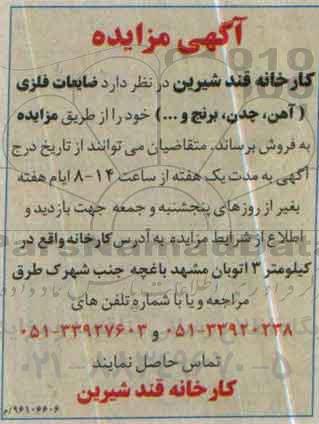 آگهی مزایده
کارخانه قند شیرین در نظر دارد ضایعات فلزی
( آهن، چدن، برنج و ...) خود را از طریق مزایده
به فروش برساند. متقاضیان می توانند از تاریخ درج
آگهی به مدت یک هفته از ساعت ۱۴-۸ ایام هفته
بغیر از روزهای پنجشنبه و جمعه جهت بازدید و
اطلاع از شرایط مزایده به آدرس کارخانه واقع در
کیلومتر ۳ اتوبان مشهد باغچه جنب شهرک طرق
مراجعه و یا با شماره تلفن های
۰۵۱-۳۳۹۲۰۲۳۸ و ۰۵۱-۳۳۹۲۷۶۰۳
تماس حاصل نمایند
کارخانه قند شیرین
۹۶۱۰۶۶۰۶/م